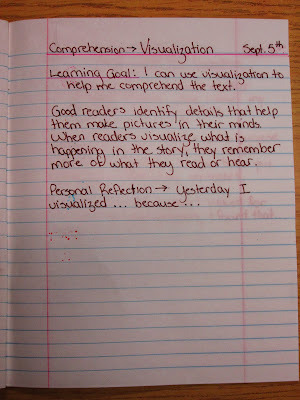 Comprehension→ Visualization Sept. 5th
Learning Goal: I can use visualization to
help me comprehend the text.
Good readers identify details that help
them make pictures in their minds.
When readers visualize what is
happening in the story, they remember
more of what they read or hear.
Personal Reflection→ Yesterday I
visualized ... because ...